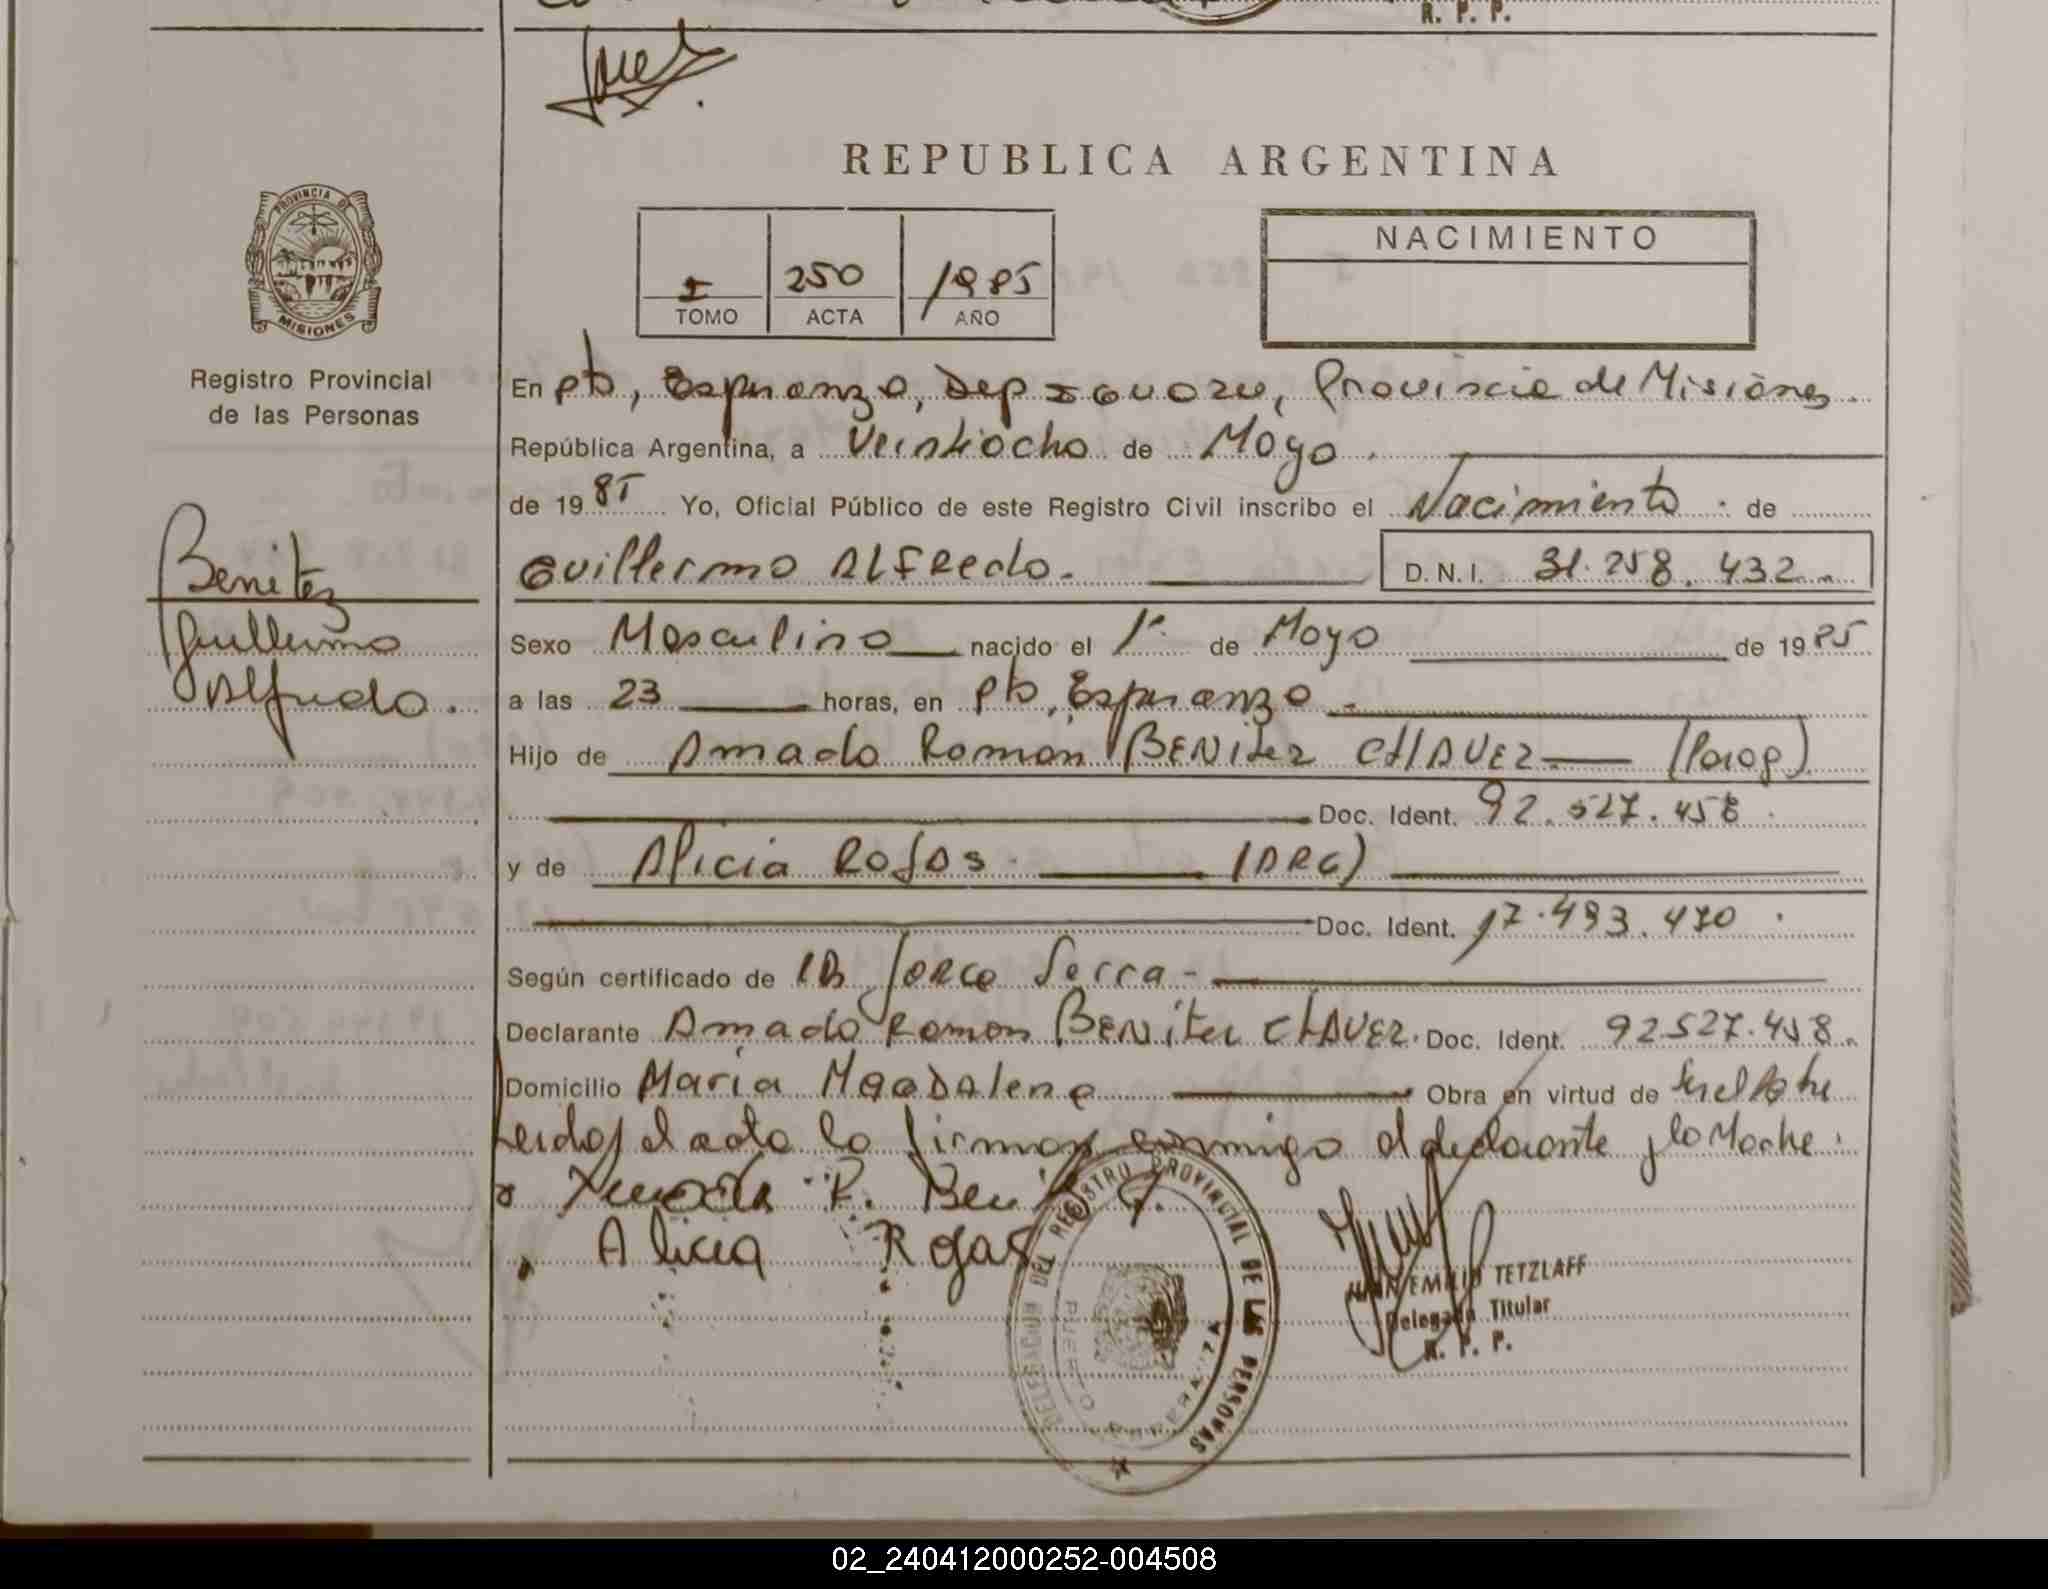 R. P. P.
REPUBLICA ARGENTINA
PROVINCIA DE
MISIONES
Registro Provincial
de las Personas
I 250 1985
TOMO ACTA AÑO
NACIMIENTO
En Pto, Esperanza, Dep Iguazu, Provincia de Misiones.
República Argentina, a Veintiocho de Mayo.
de 1985 Yo, Oficial Público de este Registro Civil inscribo el Nacimiento de
Guillermo ALFRedo. D.N.I. 31.258.432
Benitez
Guillermo
Alfredo.
Sexo Masculino nacido el 1º de Mayo de 1985
a las 23 horas, en Pto, Esperanza.
Hijo de Amado Ramon BENITEZ CHAVEZ (Parag)
Doc. Ident. 92.527.458
y de Alicia ROJAS (ARG)
Doc. Ident. 17.493.470
Según certificado de DR JORGE Serra
Declarante Amado Ramon BENITEZ CHAVEZ. Doc. Ident. 92527.458.
Domicilio Maria Magdalena Obra en virtud de ser el Padre
Leida el acta la firman conmigo el declarante y la Madre.
R. Beni
Alicia Rojas
DELEGACION DEL REGISTRO PROVINCIAL DE LAS PERSONAS
PUERTO ESPERANZA
JUAN EMILIO TETZLAFF
Delegado Titular
R. P. P.
02_240412000252-004508